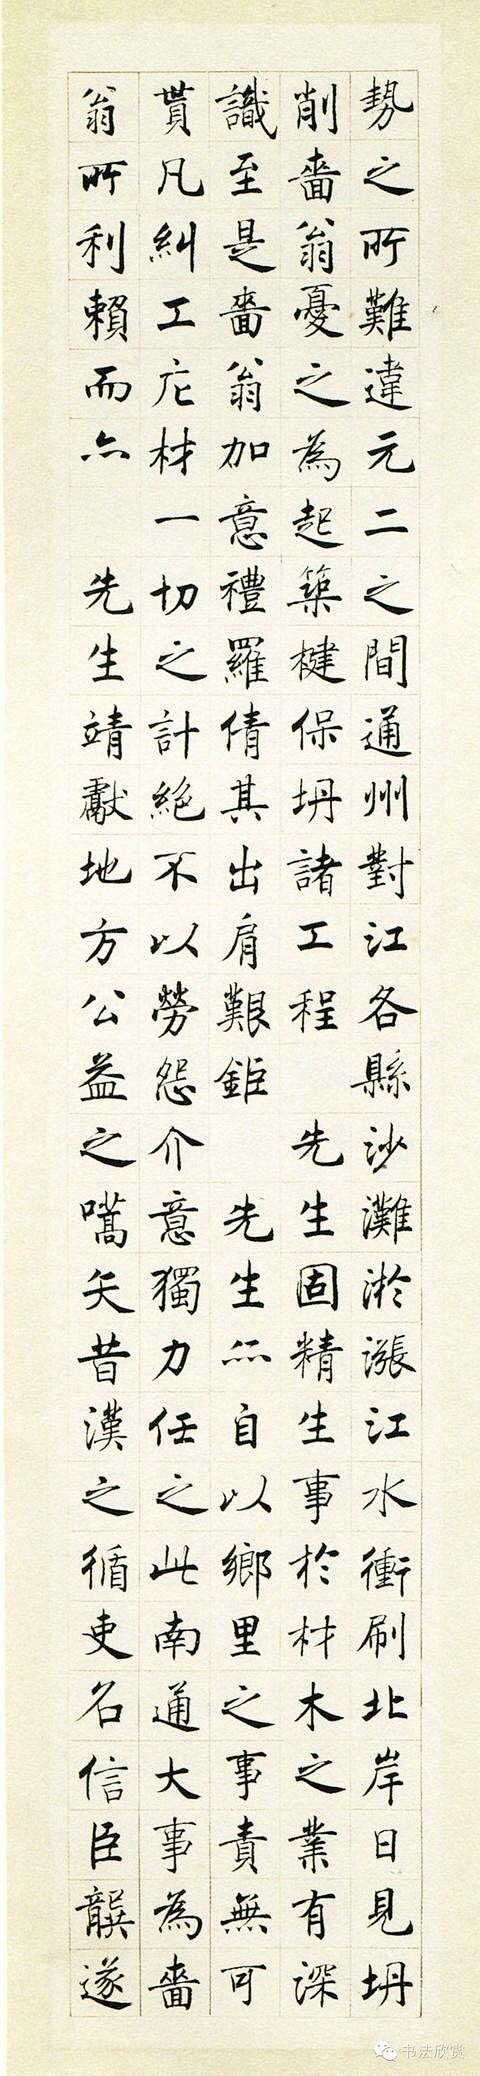 勢之所難違元二之間通州對江各縣沙灘淤漲江水衝刷北岸日見坍
削嗇翁憂之為起築楗保坍諸工程先生固精生事於材木之業有深
識至是嗇翁加意禮羅倩其出肩艱鉅先生亦自以鄉里之事責無可
貰凡糾工庀材一切之計絕不以勞怨介意獨力任之此南通大事為嗇
翁所利賴而亦先生靖獻地方公益之嚆矢昔漢之循吏名信臣龔遂
书法欣赏